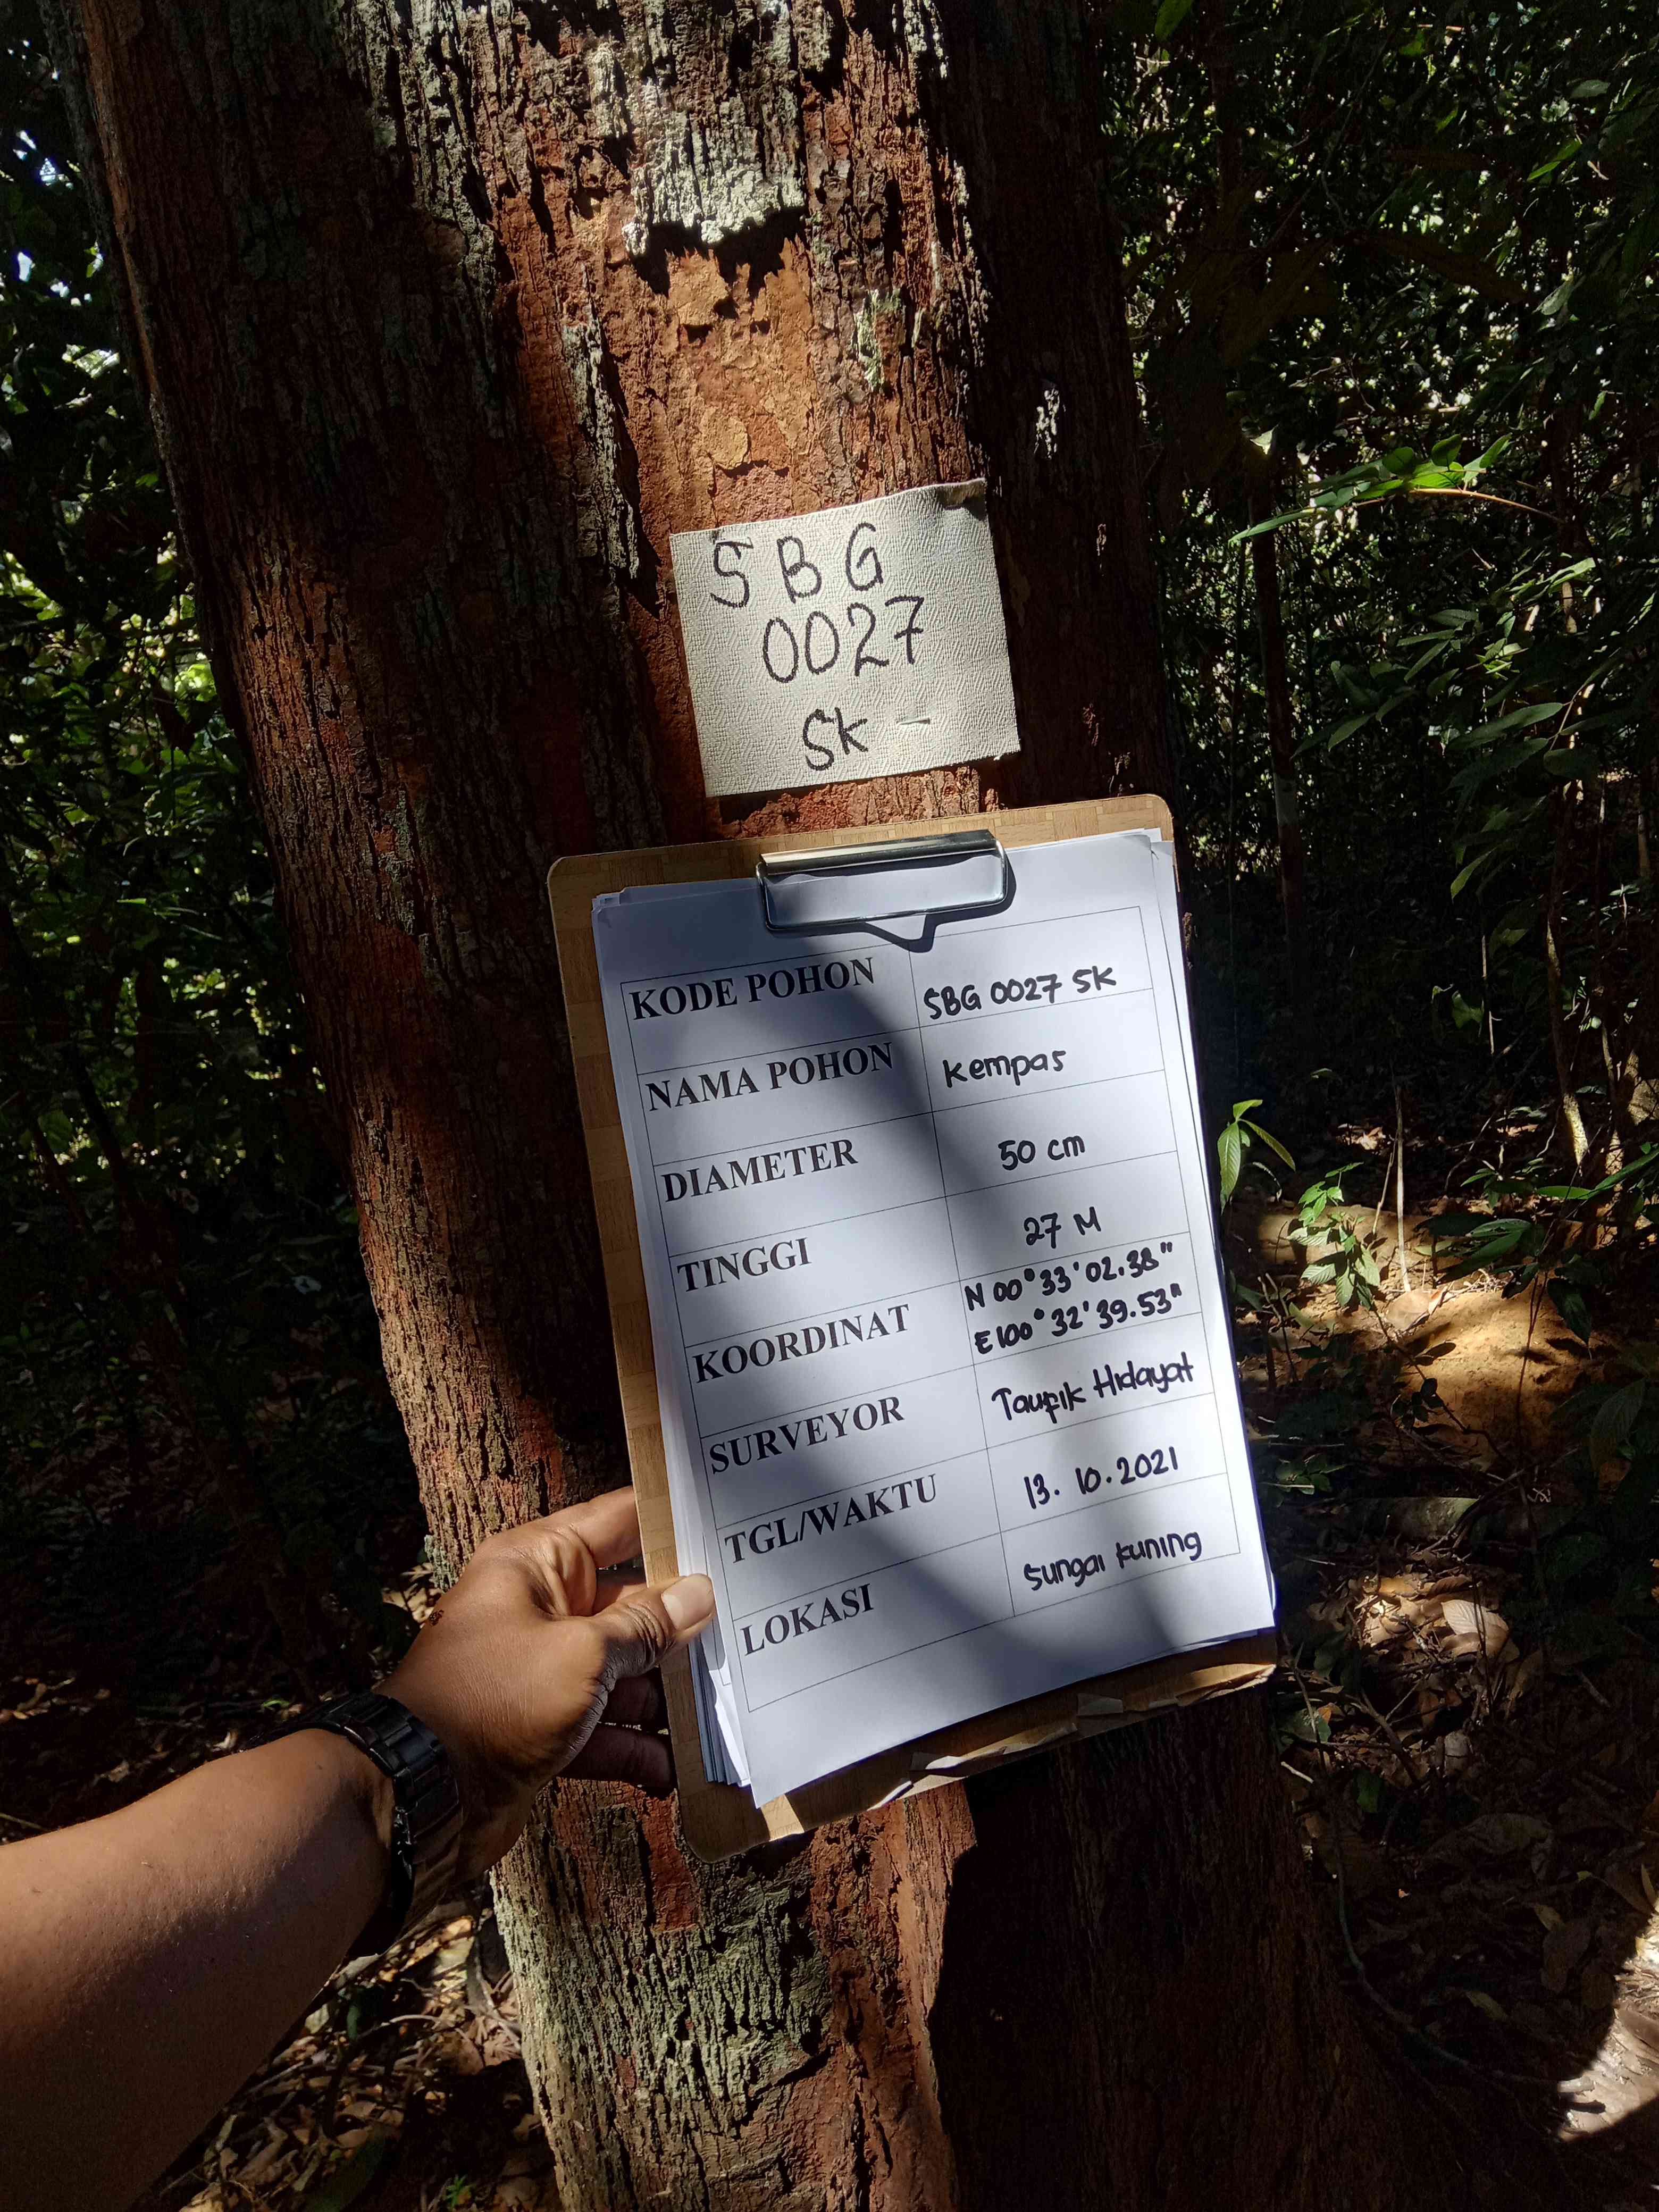 SBG
0027
SK -
KODE POHON SBG 0027 SK
NAMA POHON Kempas
DIAMETER 50 cm
TINGGI 27 M
KOORDINAT N 00° 33' 02.38"
E 100° 32' 39.53"
SURVEYOR Taufik Hidayat
TGL/WAKTU 13. 10. 2021
LOKASI Sungai Kuning